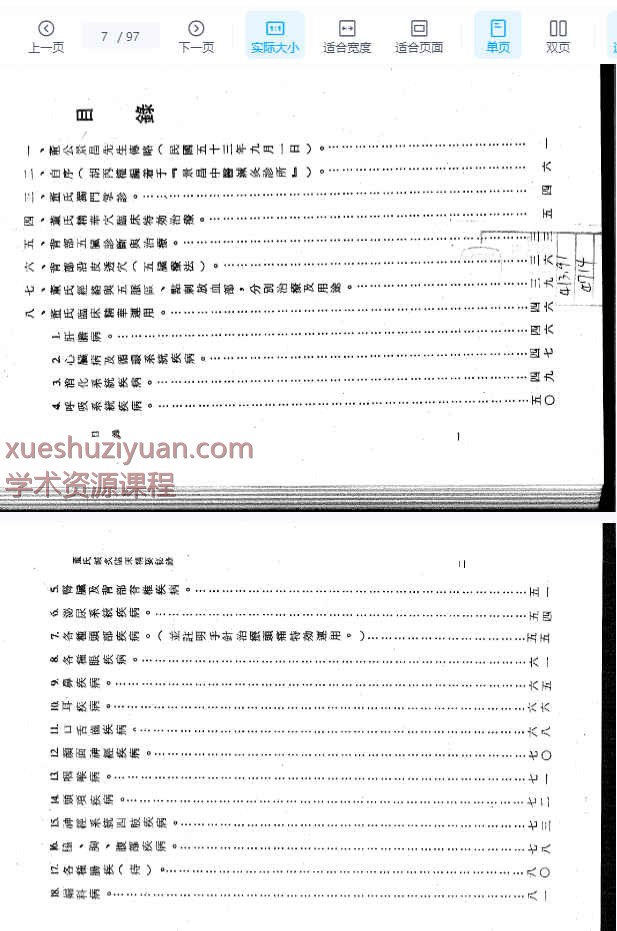 上一页
7 / 97
下一页
实际大小
适合宽度
适合页面
单页
双页
目 錄
一、董公景昌先生傳略(民國五十三年九月一日)。 一
二、自序(胡丙權編著于『景昌中醫鍼灸診所』)。 六
三、董氏獨門掌診。 四
四、董氏精華穴臨床特効治療。 五
五、背部五臟診斷與治療。 三三
六、背部沿皮透穴(五臟療法)。 三六
七、董氏經絡與五臟區、點刺放血部,分別治療及用途。 三九
八、董氏臨床精華運用。 四六
1.肝膽病。 四六
2.心臟病及循環系統疾病。 四七
3.消化系統疾病。 四九
4.呼吸系統疾病。 五〇
目 錄
一
413.91
4714
xueshuziyuan.com
学术资源课程
董氏鍼灸臨床精要秘錄
二
5.腎臟及背部脊椎疾病。 五一
6.泌尿系統疾病。 五四
7.各種頭部疾病。(並註明手針治療頭痛特効運用。) 五五
8.各種眼疾病。 六一
9.鼻疾病。 六五
10.耳疾病。 六六
11.口舌齒疾病。 六八
12.顏面神經疾病。 七〇
13.喉病。 七一
14.頸項疾病。 七二
15.神經系統四肢疾病。 七三
16.胸、腹部疾病。 七八
17.各種腸疾(痔)。 八〇
18.婦科病。 八一